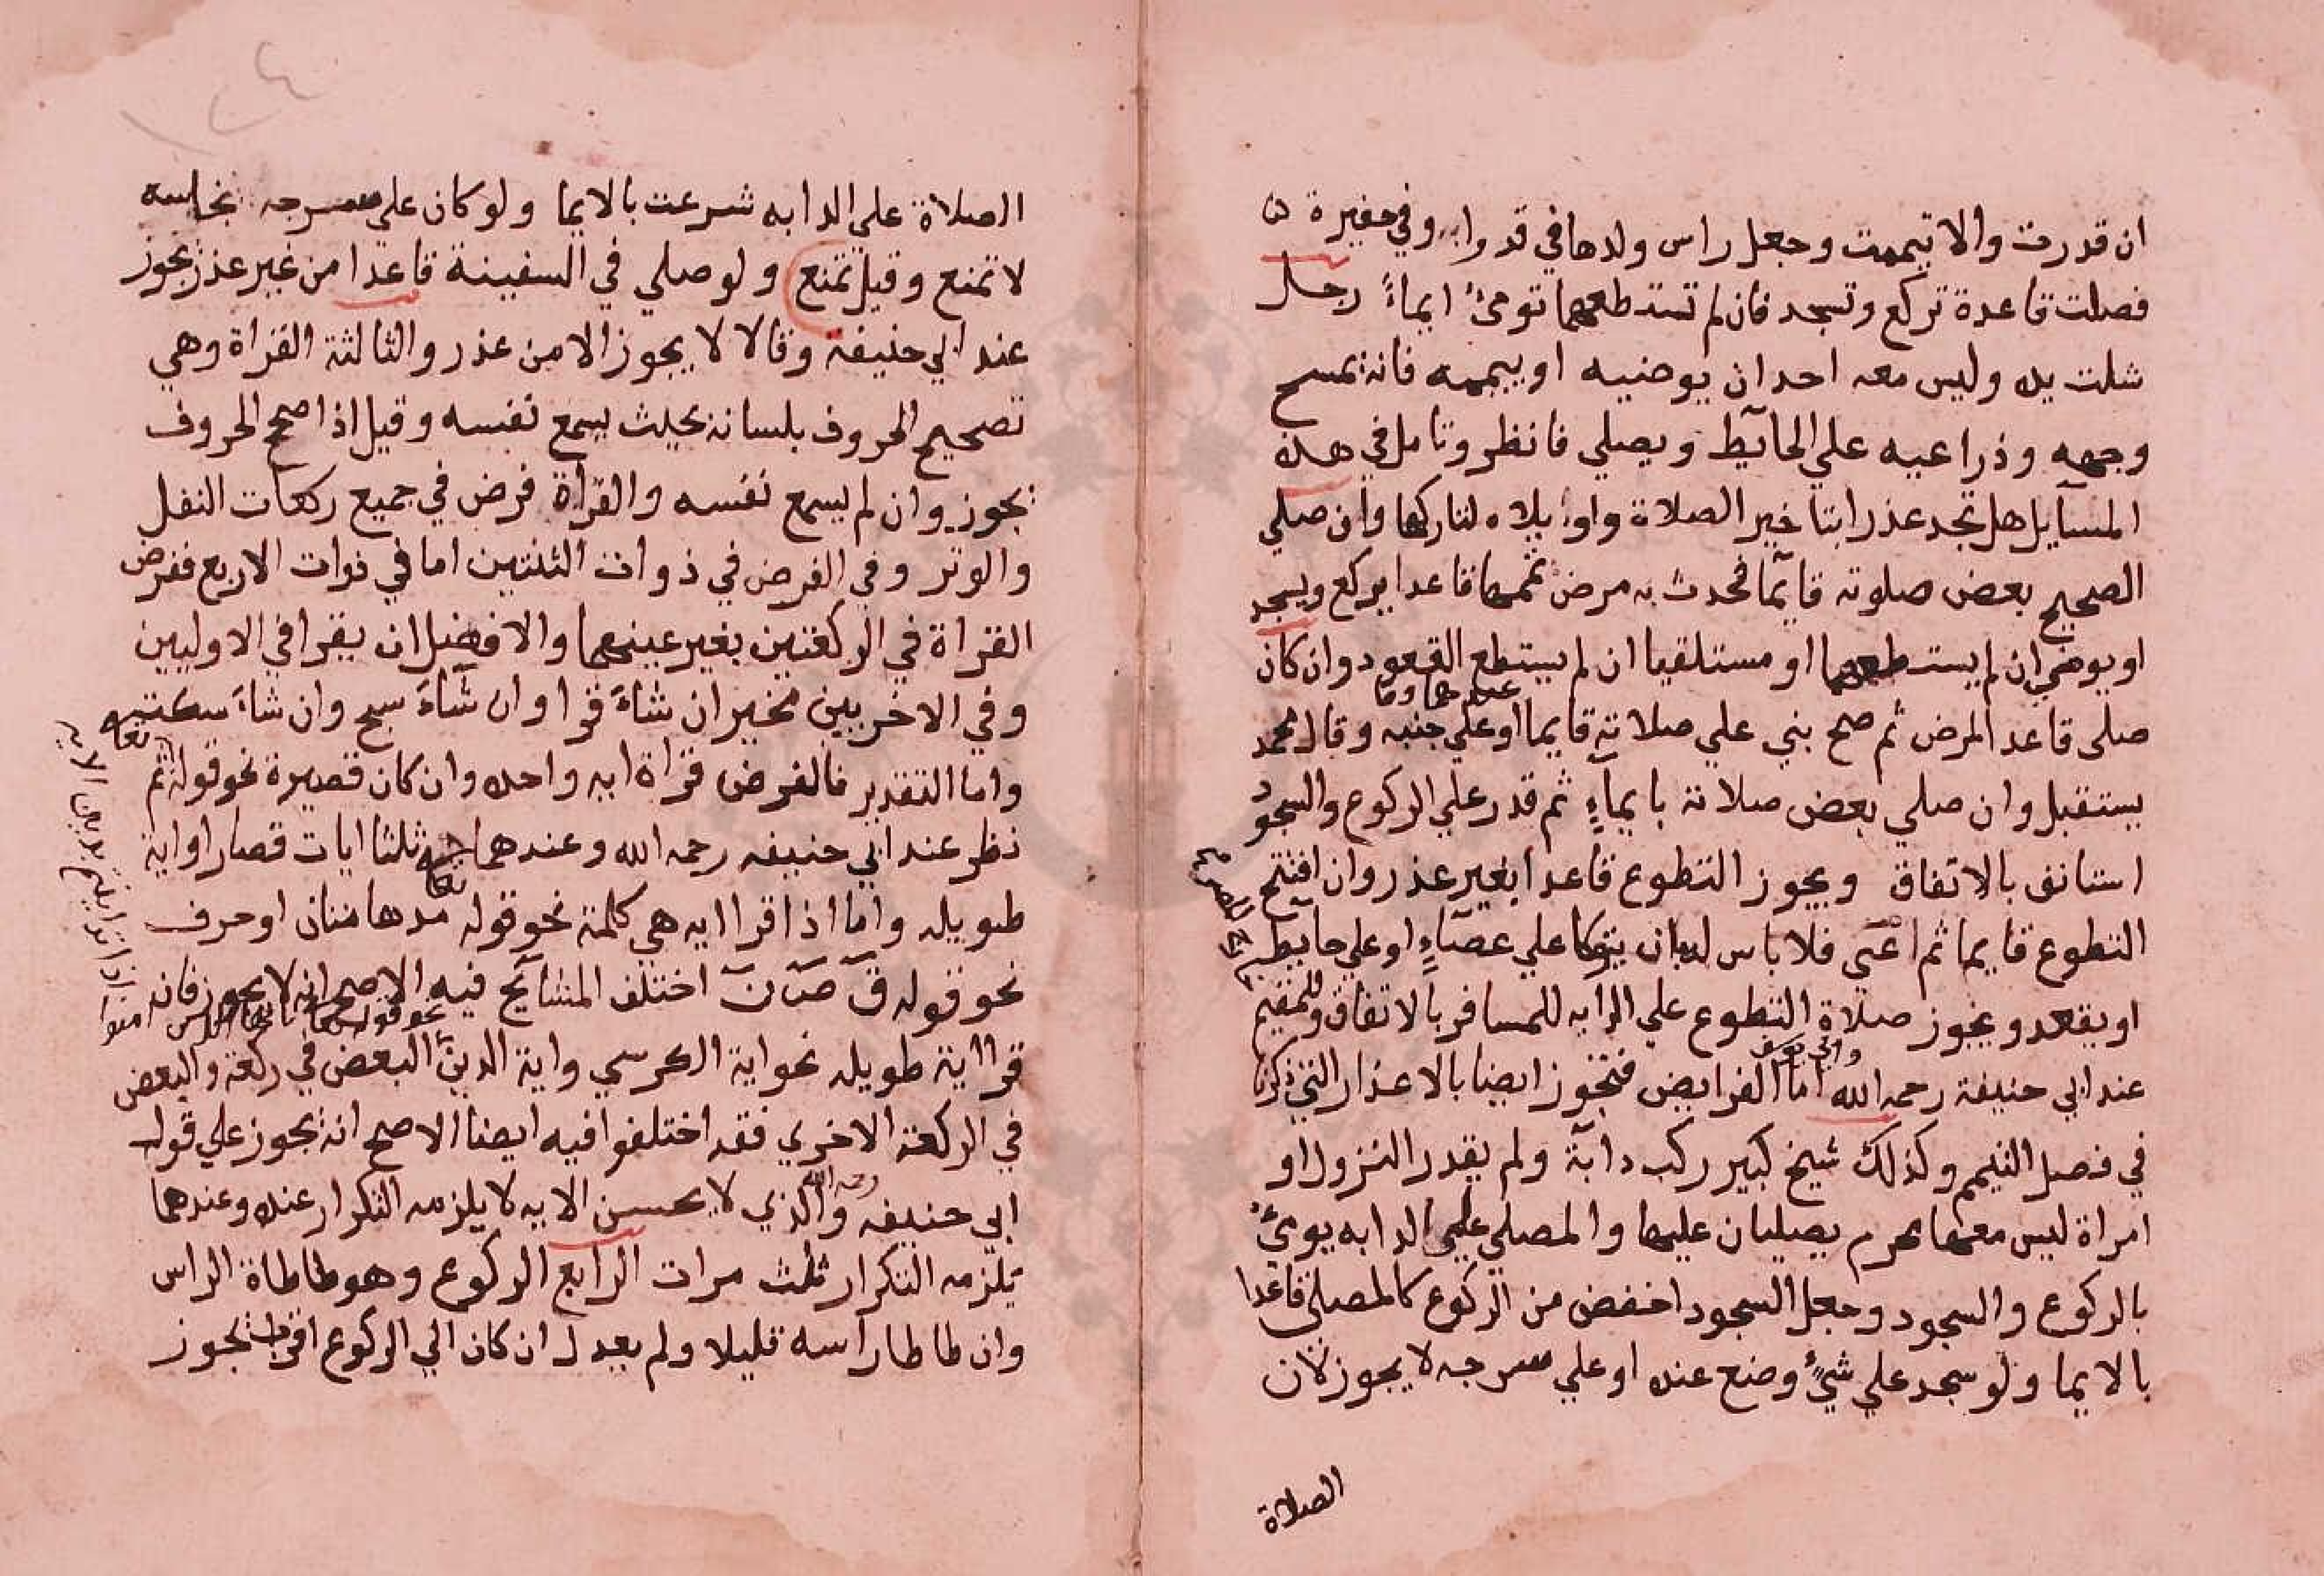 ان قدرت والا تيممت وجعل راس ولدها في قدر او وفي حفيرة
فصلت قاعدة تركع وتسجد فان لم تستطعهما تومئ ايماءً رجل
شلت يده وليس معه احد ان يوضيه او ييممه فانه يمسح
وجهه وذراعيه علي الحآيط ويصلي فانظر وتامل في هذه
المسآيل هل تجد عذرا بتاخير الصلاة واو يلاه لتاركها وان صلي
الصحيح بعض صلوته قايما فحدث به مرض تممها قاعدا يركع ويسجد
او يومي ان لم يستطعهما او مستلقيا ان لم يستطع القعود وان كان
عندهما وما
صلي قاعد المرض ثم صح بني علي صلاته قايما او علي جنبه وقال محمد
يستقبل وان صلي بعض صلاته بايماءٍ ثم قدر علي الركوع والسجود
استانف بالاتفاق ويجوز التطوع قاعدا بغير عذر وان افتتح
التطوع قايما ثم اعيي فلا باس له بان يتوكا علي عصآءٍ او علي حايط
او يقعد ويجوز صلاة التطوع علي الدابه للمسافر بالاتفاق وللمقيم
وابي يوسف
عند ابي حنيفة رحمه الله اما الفرايض فتجوز ايضا بالاعذار التي ذكرنا
في فصل التيمم وكذلك شيخ كبير ركب دابة ولم يقدر النزول او
امراة ليس معها محرم يصليان عليها والمصلي علي الدابه يومئ
بالركوع والسجود وجعل السجود اخفض من الركوع كالمصلي قاعدا
بالايما ولو سجد علي شيءٍ وضع عنده او علي سرجه لا يجوز لان
الصلاة
الصلاة علي الدابه شرعت بالايما ولو كان علي سرجه نجاسه
لا تمنع وقيل تمنع ولو صلي في السفينة قاعدا من غير عذر يجوز
عند ابي حنيفه وقالا لا يجوز الا من عذر والثالثة القراة وهي
تصحيح الحروف بلسانه بحيث يسمع نفسه وقيل اذا صحح الحروف
يجوز وان لم يسمع نفسه والقرآة فرض في جميع ركعات النفل
والوتر وفي الفرض في ذوات الثنتين اما في ذوات الاربع ففرض
القراة في الركعتين بغير عينهما والافضل ان يقرا في الاوليين
وفي الاخريين مخير ان شآءَ قرا وان شآءَ سبح وان شآءَ سكت
واما التقدير فالفرض قراة ايه واحده وان كان قصيرة نحو قوله ثم
تعا
نظر عند ابي حنيفه رحمه الله وعندهما ثلثا ايات قصار او اية
تعا
طويله واما اذا قرا ايه هي كلمة نحو قوله مدهامتان او حرف
نحو قوله قٓ صٓ نٓ اختلف المشآيخ فيه الاصح انه لا يجوز فانه
قرا اية طويله نحو اية الكرسي واية الدين البعض في ركعة والبعض
في الركعة الاخري فقد اختلفوا فيه ايضا الاصح انه يجوز علي قول
رحمه الله
ابي حنيفه والذي لا يحسن الا ايه لا يلزمه التكرار عنده وعندهما
يلزمه التكرار ثلث مرات الرابع الركوع وهو طاطاة الراس
وان طاطا راسه قليلا ولم يعدل ان كان الي الركوع اقرب يجوز